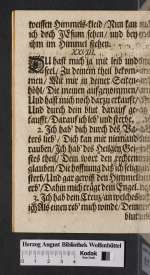 weissen Himmels-Kleid/ Nun kan
mich doch JEsum sehen/ und bey
ihm im Himmel stehen.
XXVII.
DU hast mich ja mit leib und
seel/ Zu deinem theil bekom-
men/ Mit mir zu deiner Seiten
höhl/ Die meinen auffgenommen/
Und hast mich noch darzu
Und durch dein blut darauf
kaufft/ Darauf ich leb und sterbe.
2. Ich hab' dich durch des Va-
ters lieb'/ Dich kan mir niemand
rauben/ Ich hab' des Heilgen Gei-
stes theil/ Dem wort den rechten
glauben/ Die hoffnung daß ich selig
sterb/ Und gar gewiß den Himmel
erb'/ Dahin mich trägt dein Engel.
3. Ich hab dem Creutz/ an welches
ich Als einen reb' mich winde/
blut
Herzog August Bibliothek Wolfenbüttel